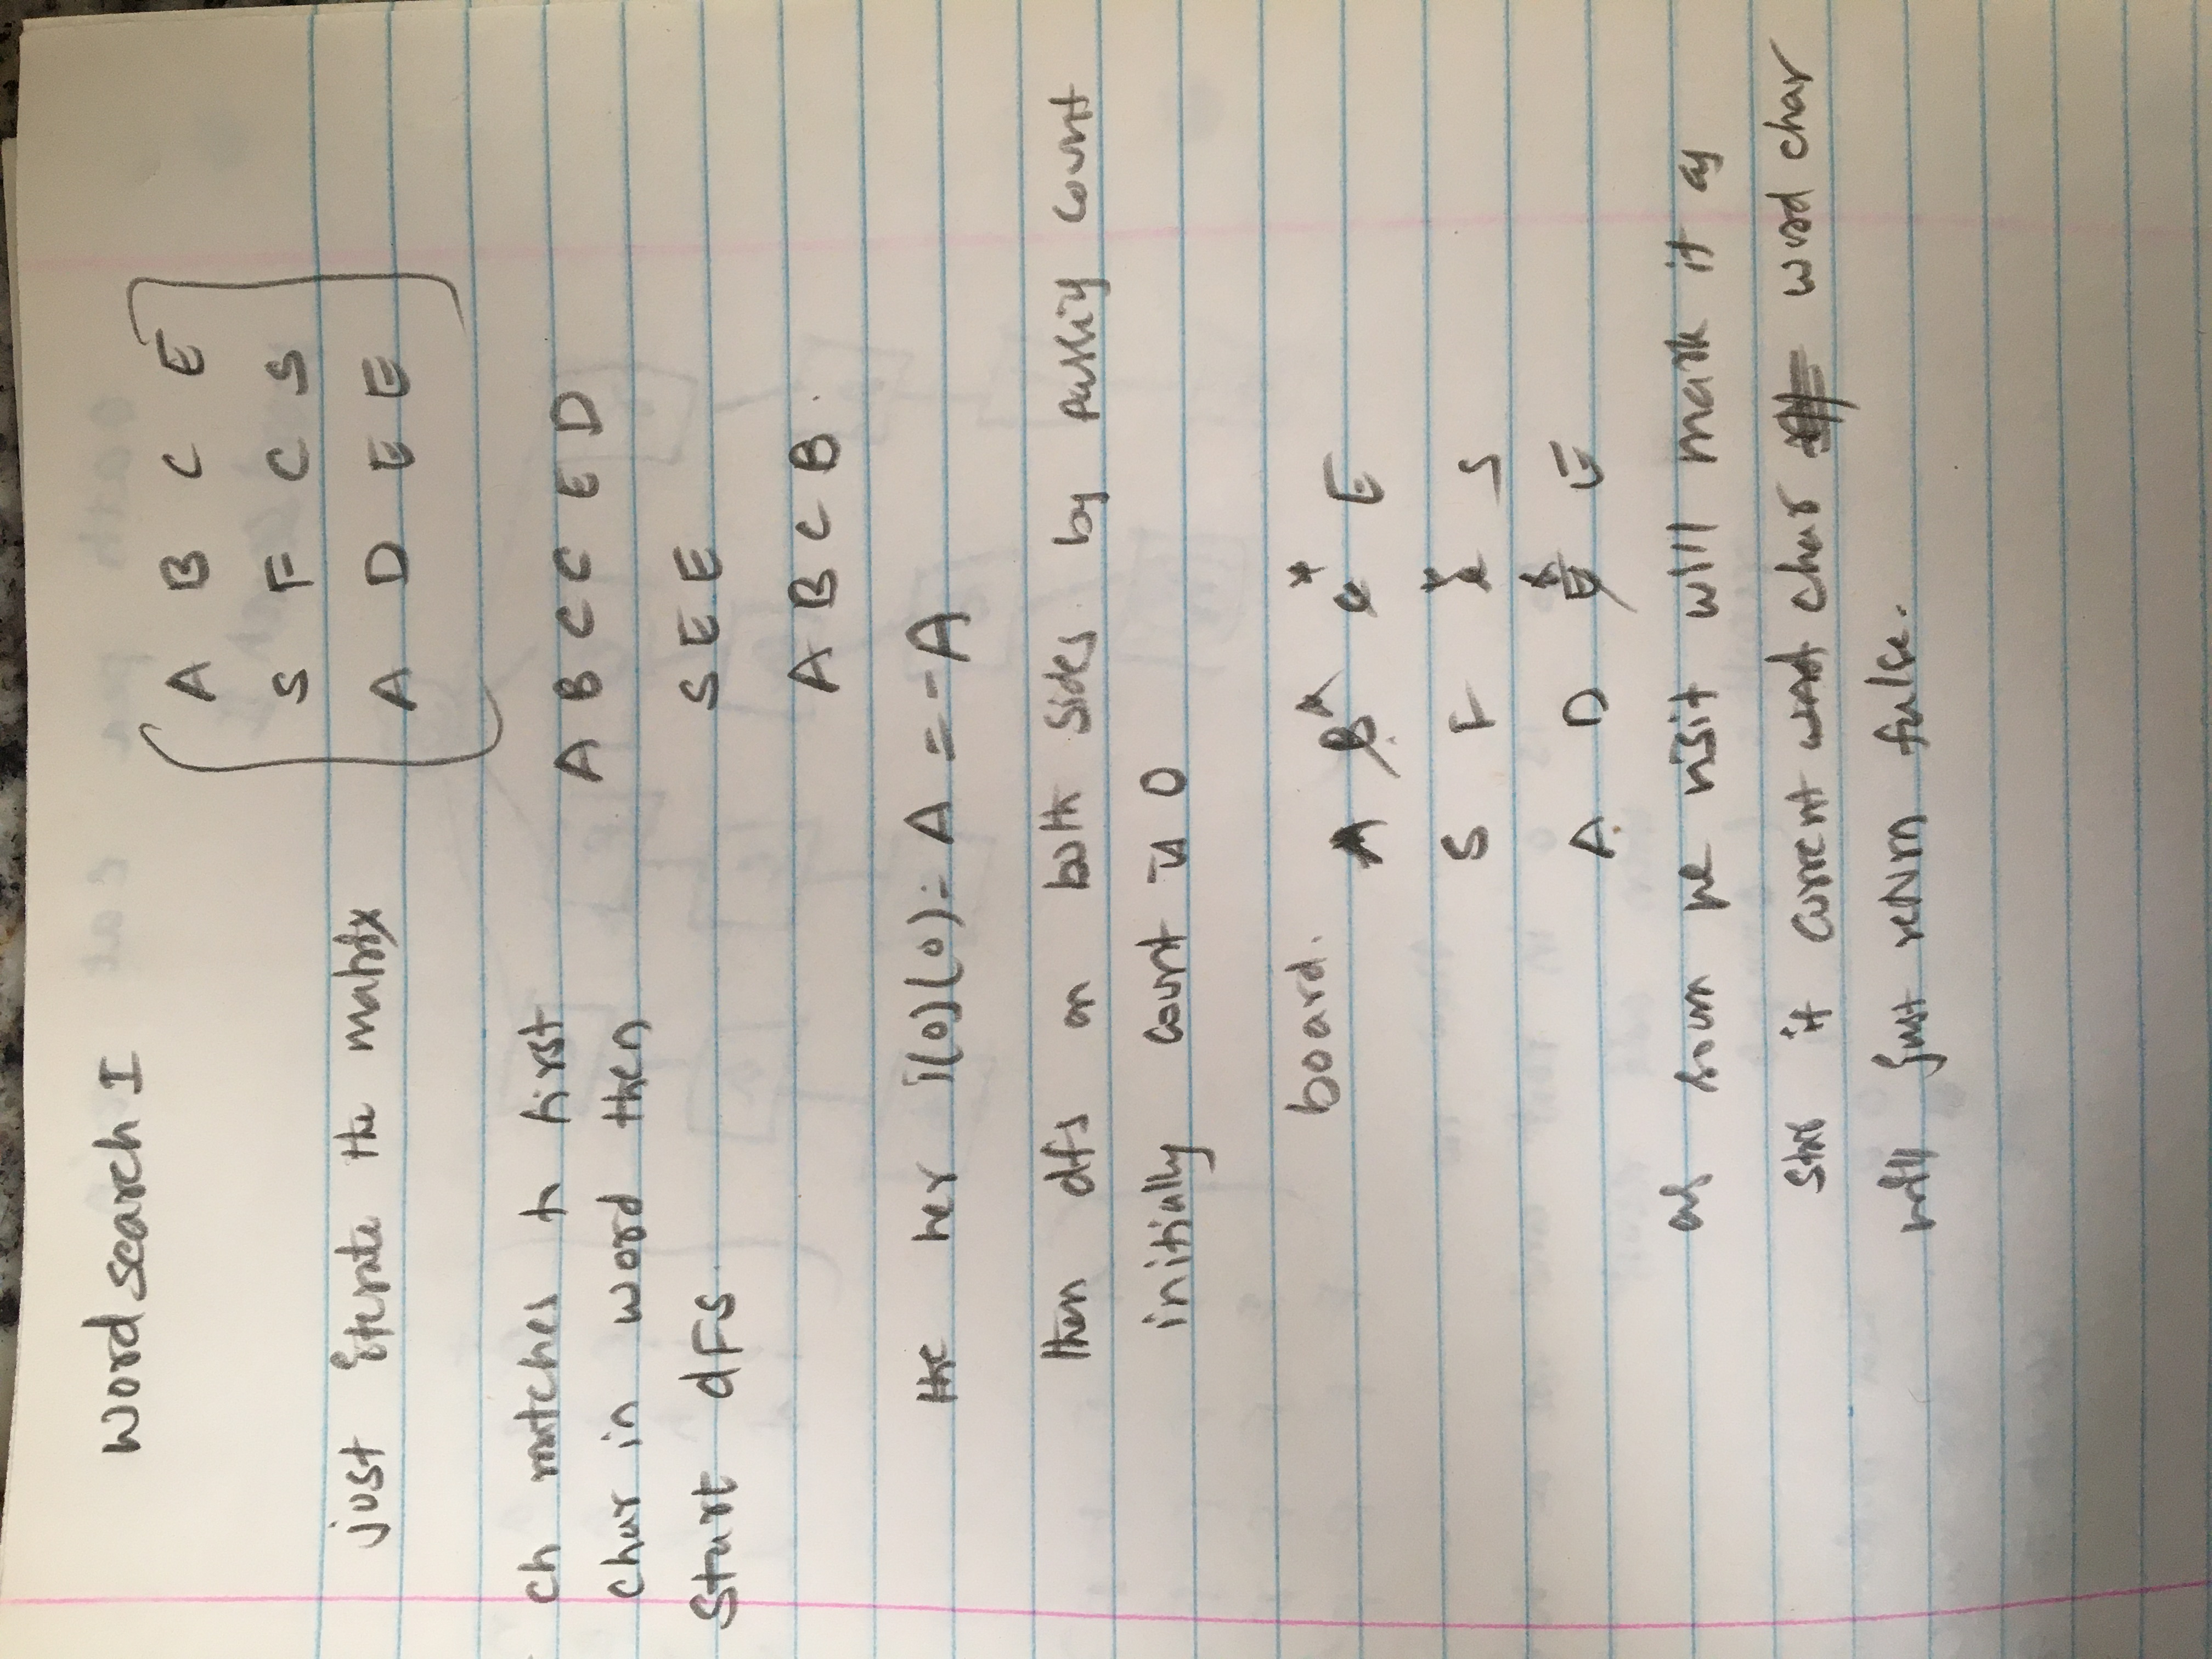 Word search I
A B C E
S F C S
just iterate the matrix
A D E E
ch matches to first
A B C C E D
char in word then
Start dFS
S E E
A B C B.
her i(0)(0) = A == A
then dfs on both sides by passing count
initially count is 0
board.
A B* C* E
S F C* S
A D E* E
as soon we visit will mark it as
star if current char word char
will just return false.